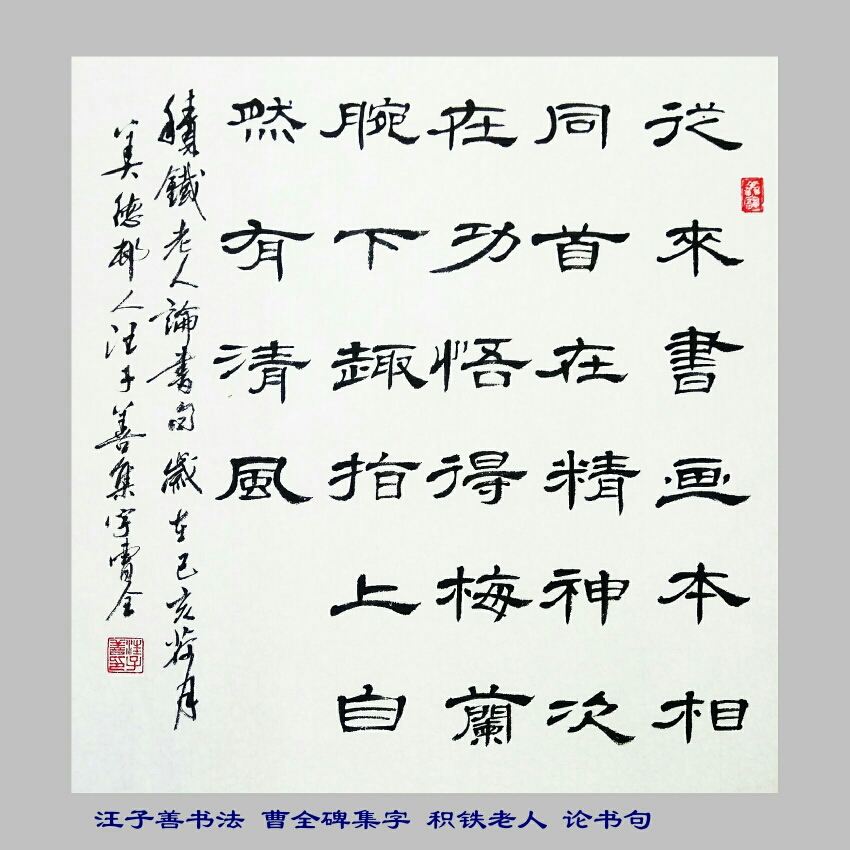 從來書画本相
同首在精神次
在功悟得梅蘭
腕下趣指上自
然有清風
積鐵老人論書句歲在己亥荷月
美德鄉人汪子善集字曹全
汪子善书法 曹全碑集字 积铁老人 论书句